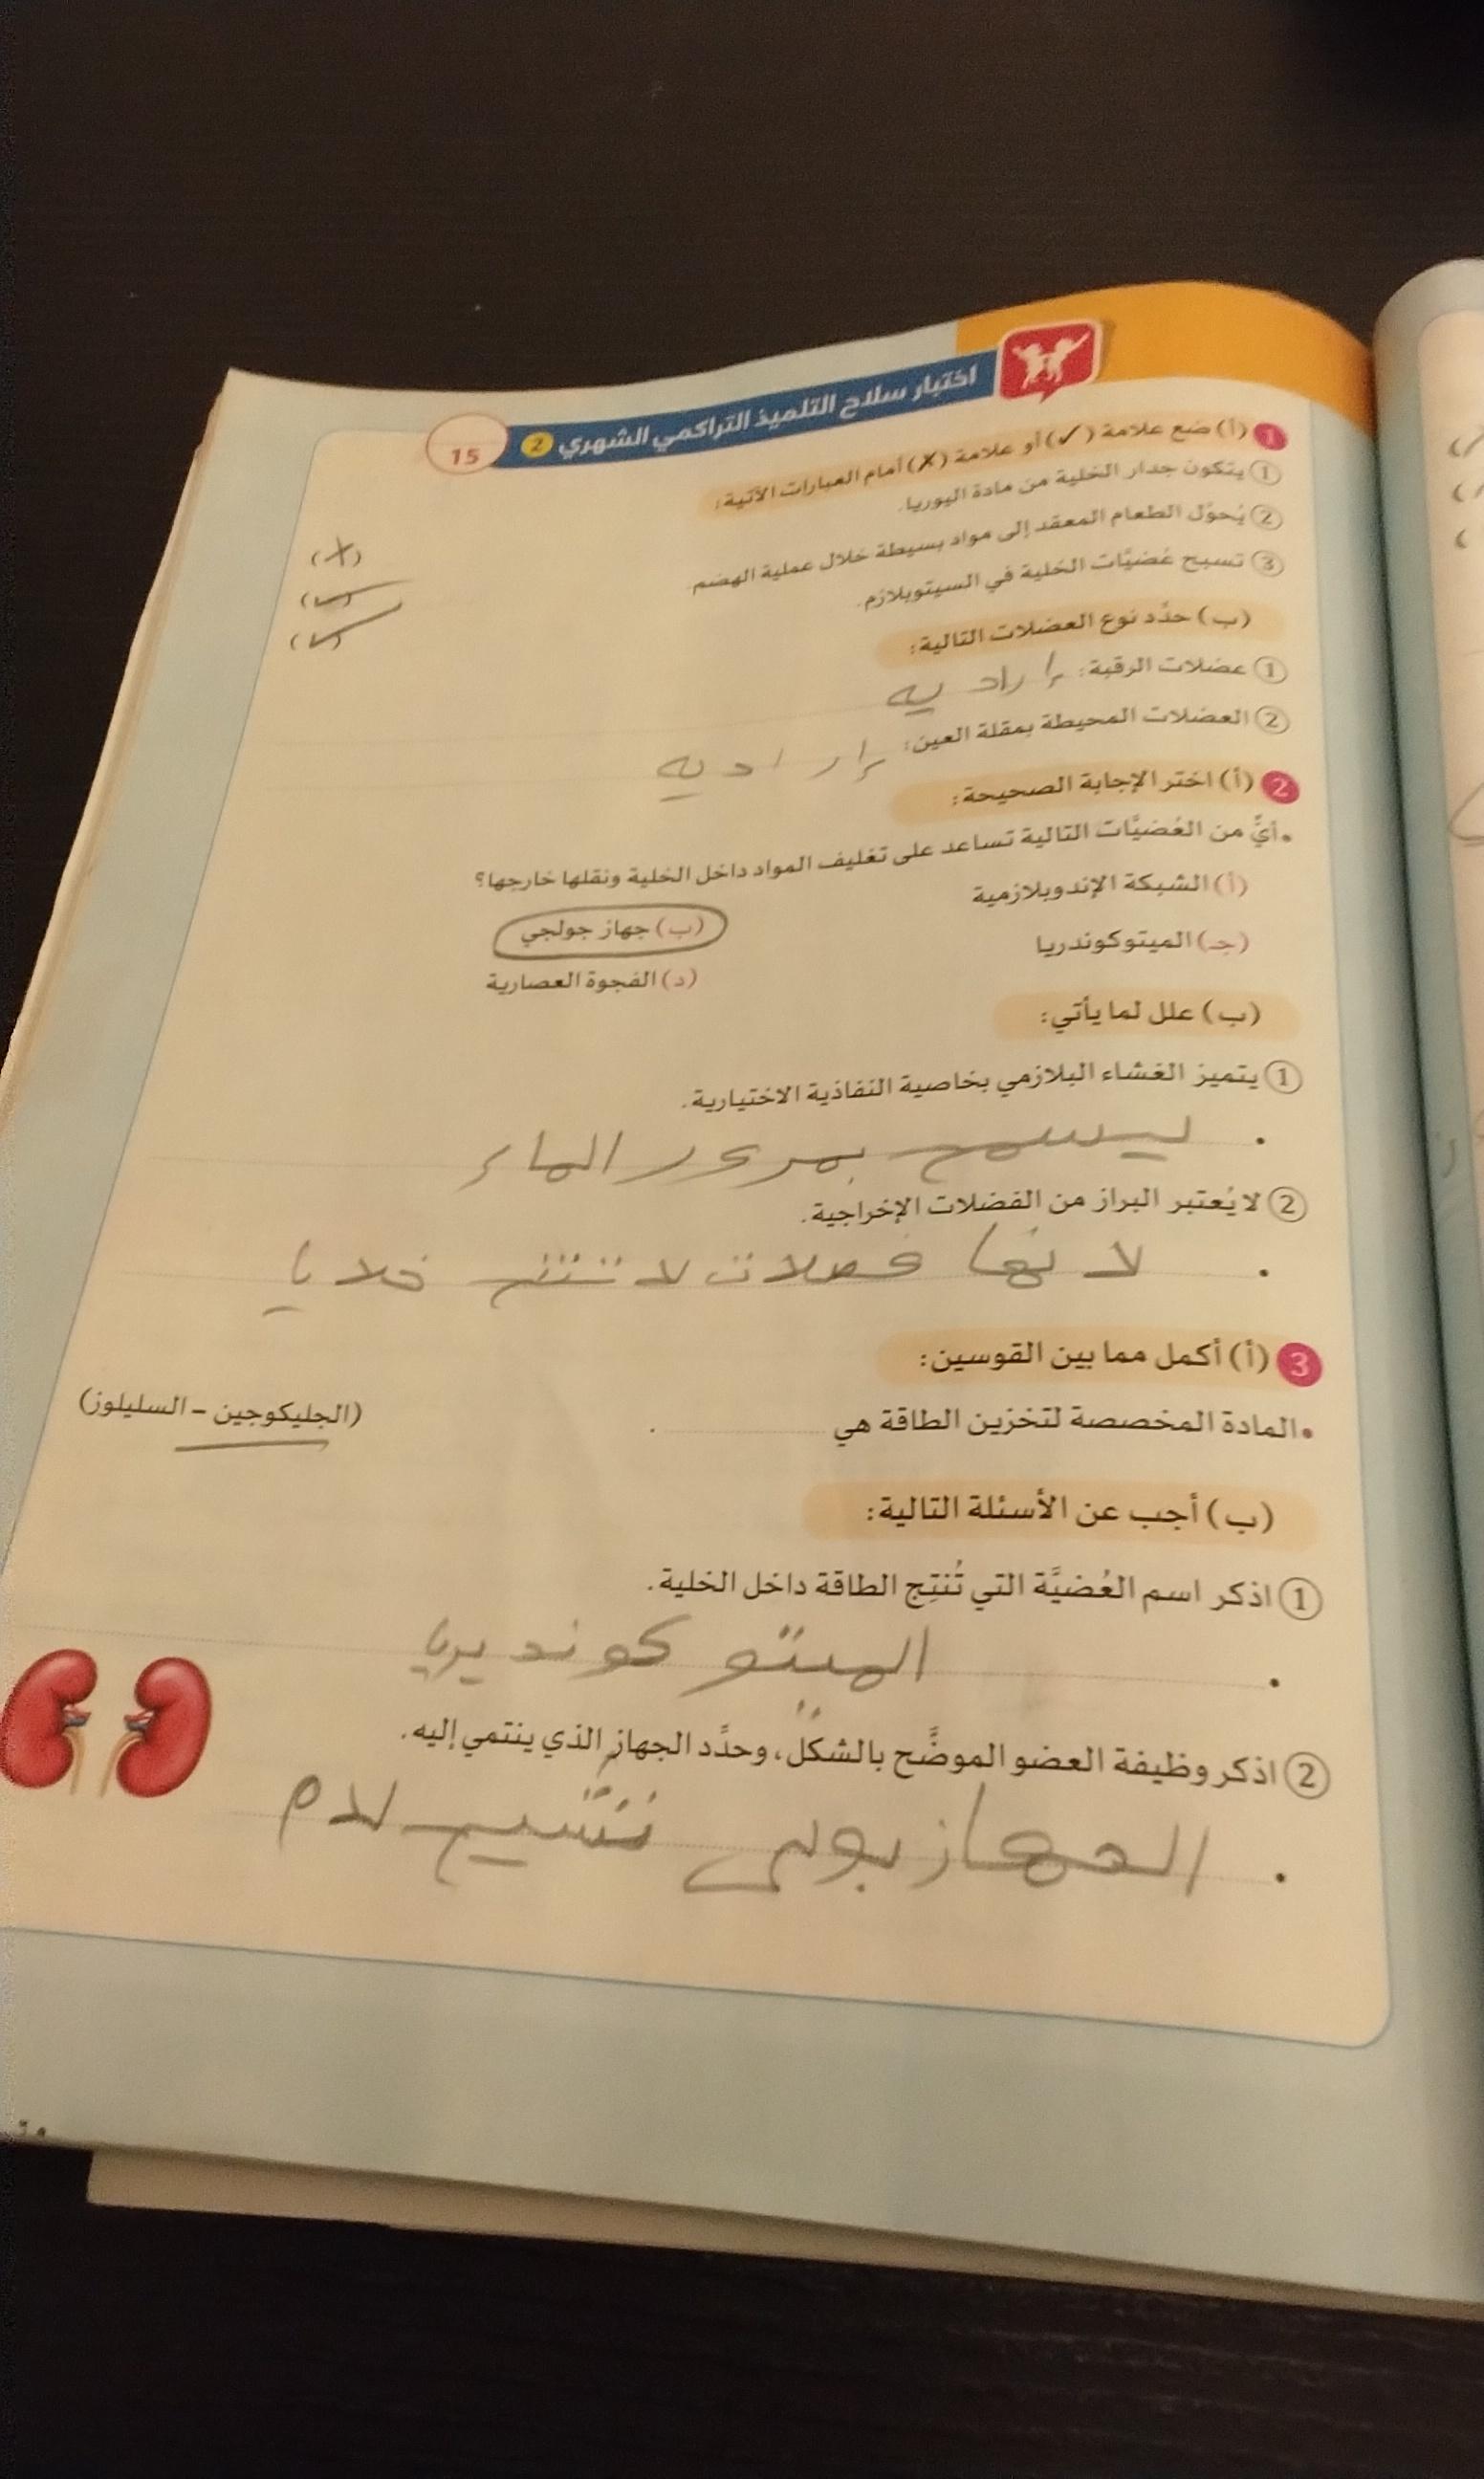 اختبار سلاح التلميذ التراكمي الشهري 2
15
1 (أ) ضع علامة (✓) أو علامة (✗) أمام العبارات الآتية:
1 يتكون جدار الخلية من مادة اليوريا. (X)
2 يُحوَّل الطعام المعقد إلى مواد بسيطة خلال عملية الهضم. (✓)
3 تسبح عُضيَّات الخلية في السيتوبلازم. (✓)
(ب) حدِّد نوع العضلات التالية:
1 عضلات الرقبة: إراديه
2 العضلات المحيطة بمقلة العين: إراديه
2 (أ) اختر الإجابة الصحيحة:
• أيٌّ من العُضيَّات التالية تساعد على تغليف المواد داخل الخلية ونقلها خارجها؟
(أ) الشبكة الإندوبلازمية (ب) جهاز جولجي
(جـ) الميتوكوندريا (د) الفجوة العصارية
(ب) علل لما يأتي:
1 يتميز الغشاء البلازمي بخاصية النفاذية الاختيارية.
• ليسمح بمرور الماء
2 لا يُعتبر البراز من الفضلات الإخراجية.
• لانها فضلات لا تنتج خلايا
3 (أ) أكمل مما بين القوسين:
• المادة المخصصة لتخزين الطاقة هي (الجليكوجين - السليلوز)
(ب) أجب عن الأسئلة التالية:
1 اذكر اسم العُضيَّة التي تُنتِج الطاقة داخل الخلية.
• الميتوكونديريا
2 اذكر وظيفة العضو الموضَّح بالشكل، وحدِّد الجهاز الذي ينتمي إليه.
• الجهاز بولى لدم